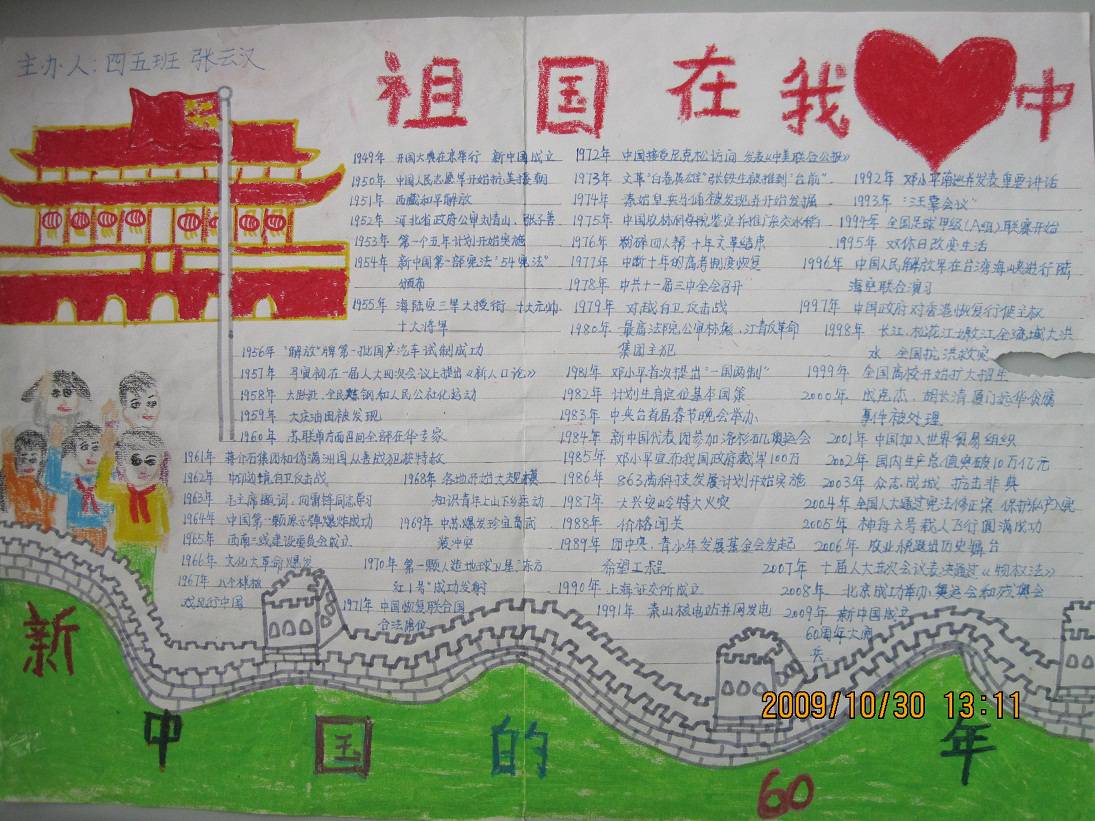 主办人:四五班 张云汉
祖国在我中
1949年 开国大典在京举行 新中国成立
1950年 中国人民志愿军开始抗美援朝
1951年 西藏和平解放
1952年 河北省政府公审刘青山、张子善
1953年 第一个五年计划开始实施
1954年 新中国第一部宪法“54宪法”
颁布
1955年 海陆空三军大授衔 十大元帅、
十大将军
1956年 “解放”牌第一批国产汽车试制成功
1957年 马寅初在一届人大四次会议上提出《新人口论》
1958年 大跃进、全民炼钢和人民公社化运动
1959年 大庆油田被发现
1960年 苏联单方面召回全部在华专家
1961年 蒋介石集团和伪满洲国从善战犯获特赦
1962年 中印边境自卫反击战
1963年 毛主席题词:向雷锋同志学习
1964年 中国第一颗原子弹爆炸成功
1965年 西南三线建设委员会成立
1966年 文化大革命爆发
1967年 八个样板
戏风行中国
1968年 各地开始大规模
知识青年上山下乡运动
1969年 中苏爆发珍宝岛武
装冲突
1970年 第一颗人造地球卫星“东方
红1号”成功发射
1971年 中国恢复联合国
合法席位
1972年 中国接受尼克松访问 发表《中美联合公报》
1973年 文革“白卷英雄”张铁生被推到“台前”
1974年 秦始皇兵马俑被发现并开始发掘
1975年 中国农林科学院鉴定并推广杂交水稻
1976年 粉碎四人帮 十年文革结束
1977年 中断十年的高考制度恢复
1978年 中共十一届三中全会召开
1979年 对越自卫反击战
1980年 最高法院公审林彪、江青反革命
集团主犯
1981年 邓小平首次提出“一国两制”
1982年 计划生育定位基本国策
1983年 中央台首届春节晚会举办
1984年 新中国代表团参加洛杉矶奥运会
1985年 邓小平宣布我国政府裁军100万
1986年 863高科技发展计划开始实施
1987年 大兴安岭特大火灾
1988年 价格闯关
1989年 团中央、青少年发展基金会发起
希望工程
1990年 上海证交所成立
1991年 秦山核电站并网发电
1992年 邓小平南巡并发表重要讲话
1993年 “汪辜会议”
1994年 全国足球甲级(A组)联赛开始
1995年 双休日改变生活
1996年 中国人民解放军在台湾海峡进行陆
海空联合演习
1997年 中国政府对香港恢复行使主权
1998年 长江、松花江、嫩江全流域大洪
水 全国抗洪救灾
1999年 全国高校开始扩大招生
2000年 成克杰、胡长清、厦门远华贪腐
事件被处理
2001年 中国加入世界贸易组织
2002年 国内生产总值突破10万亿元
2003年 众志成城 抗击非典
2004年 全国人大通过宪法修正案 保护私产入宪
2005年 神舟六号载人飞行圆满成功
2006年 农业税退出历史舞台
2007年 十届人大五次会议表决通过《物权法》
2008年 北京成功举办奥运会和残奥会
2009年 新中国成立
60周年大阅
兵
新中国的60年
2009/10/30 13:11